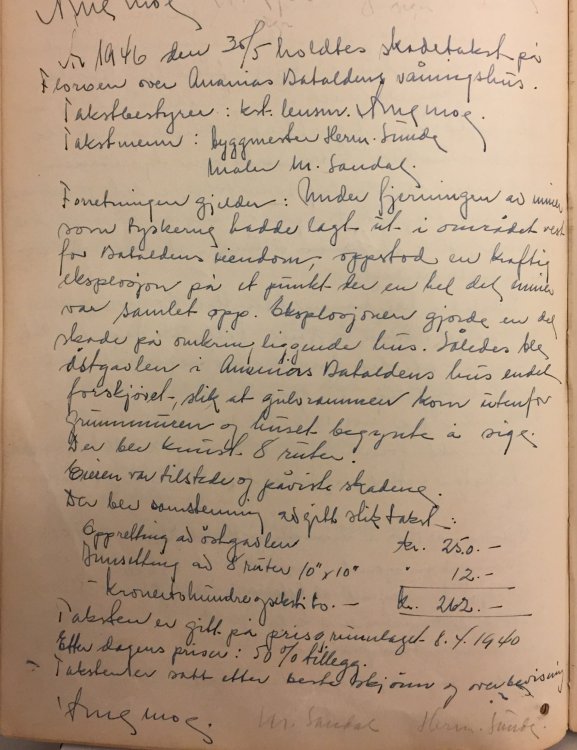 Arne Moe
År 1946 den 30/5 holdtes skadetakst på
Florøen over Ananias Bataldens våningshus.
Takstbestyrer: kst. lensm. Arne Moe.
Takstmenn: byggmester Herm. Sunde
Maler M. Sandal.
Forretningen gjelder: Under fjerningen av miner
som tyskerne hadde lagt ut i området vest
for Bataldens eiendom, oppstod en kraftig
eksplosjon på et punkt der en hel del miner
var samlet opp. Eksplosjonen gjorde en del
skade på omkring liggende hus. Således ble
østgavlen i Ananias Bataldens hus endel
forskjövet, slik at gulvrammen kom utenfor
grunnmuren og huset begynte å sige.
Der blev knust 8 ruter.
Eieren var tilstede og påviste skadene.
Der blev samstemmig avgitt slik takst:
Oppretting av östgavlen kr. 250.-
Innsetting av 8 ruter 10" x 10" " 12.-
- Kronertohundreogsekstito. - kr. 262.-
Taksten er gitt på prisgrunnlaget 8.4.1940
Etter dagens priser: 50% tillegg.
- Taksten er satt etter beste skjönn og overbevisning
Arne Moe. M. Sandal Herm. Sunde.